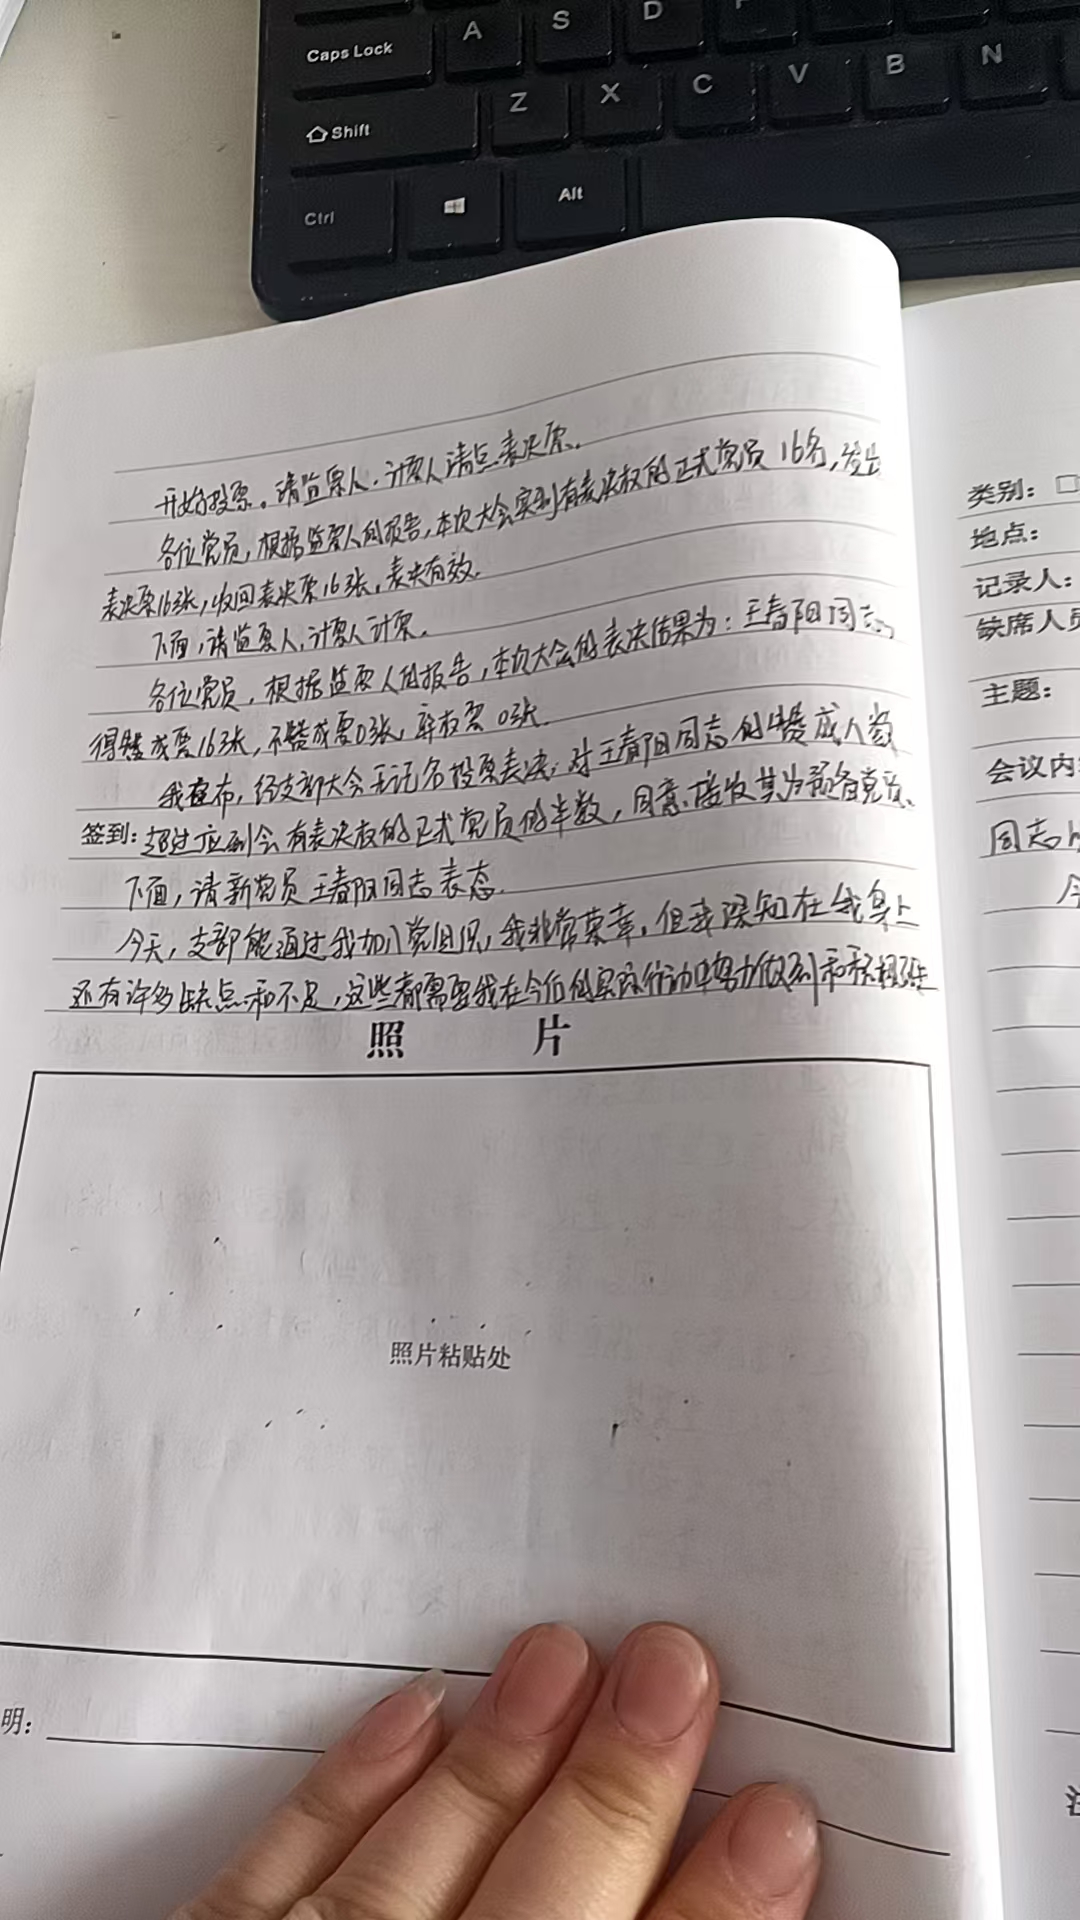 A S D F
Caps Lock
Z X C V B N
Shift
Ctrl Alt
开始投票。请监票人、计票人清点表决票。
各位党员,根据监票人的报告,本次大会实到有表决权的正式党员16名,发出
表决票16张,收回表决票16张,表决有效。
下面,请监票人、计票人计票。
各位党员,根据监票人的报告,本次大会的表决结果为:王春阳同志,
得赞成票16张,不赞成票0张,弃权票0张。
我宣布,经支部大会无记名投票表决,对王春阳同志的赞成人数
签到:超过应到会有表决权的正式党员的半数,同意接收其为预备党员。
下面,请新党员王春阳同志表态。
今天,支部能通过我加入党组织,我非常荣幸,但我深知在我身上
还有许多缺点和不足,这些都需要我在今后的实际行动中努力做到和
照 片
照片粘贴处
明:
类别:□
地点:
记录人:
缺席人员
主题:
会议内容
同志
今
注